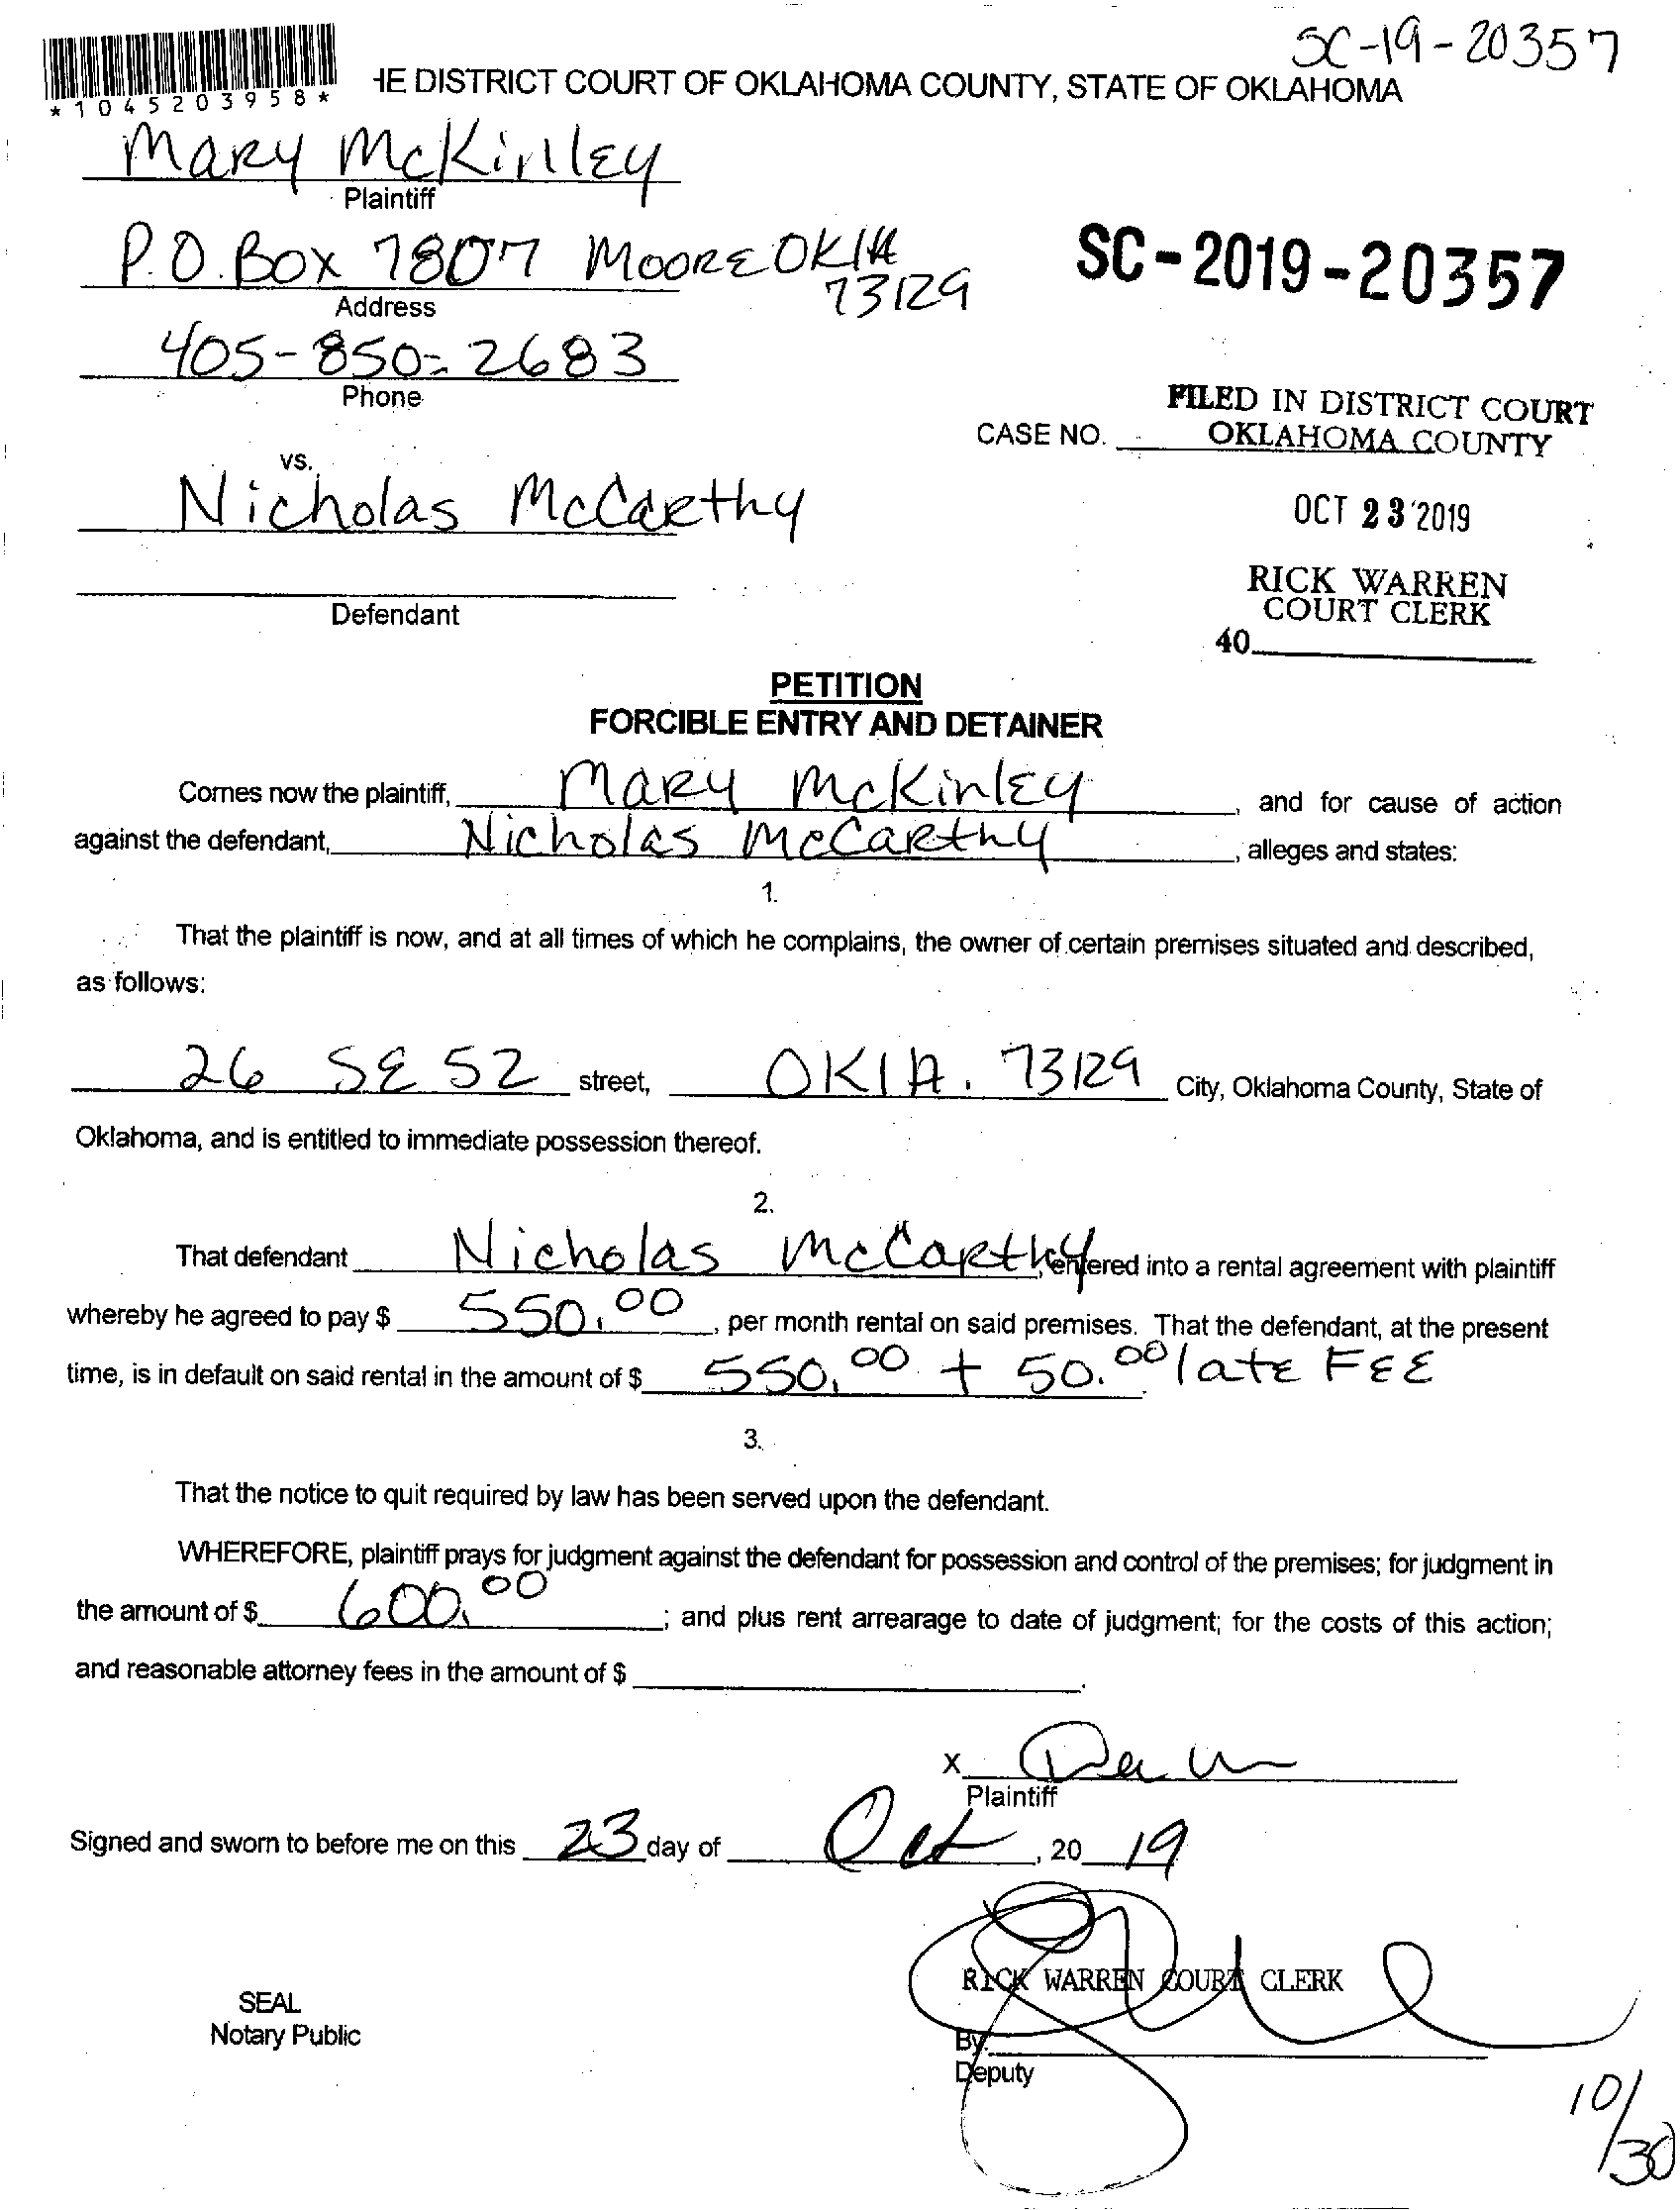 SC-19-20357
*1045203958*
HE DISTRICT COURT OF OKLAHOMA COUNTY, STATE OF OKLAHOMA
Mary McKinley
Plaintiff
P.O. Box 7807 Moore OKlA
73129
Address
SC-2019-20357
405-850-2683
Phone
FILED IN DISTRICT COURT
CASE NO. OKLAHOMA COUNTY
vs.
Nicholas McCarthy
OCT 23 2019
Defendant
RICK WARREN
COURT CLERK
40
PETITION
FORCIBLE ENTRY AND DETAINER
Comes now the plaintiff, Mary McKinley, and for cause of action
against the defendant, Nicholas McCarthy, alleges and states:
1.
That the plaintiff is now, and at all times of which he complains, the owner of certain premises situated and described,
as follows:
26 SE 52 street, OKlA. 73129 City, Oklahoma County, State of
Oklahoma, and is entitled to immediate possession thereof.
2.
That defendant Nicholas McCarthy, entered into a rental agreement with plaintiff
whereby he agreed to pay $ 550.00, per month rental on said premises. That the defendant, at the present
time, is in default on said rental in the amount of $ 550.00 + 50.00 late FEE
3.
That the notice to quit required by law has been served upon the defendant.
WHEREFORE, plaintiff prays for judgment against the defendant for possession and control of the premises; for judgment in
the amount of $ 600.00; and plus rent arrearage to date of judgment; for the costs of this action;
and reasonable attorney fees in the amount of $ .
X
Plaintiff
Signed and sworn to before me on this 23 day of Oct, 20 19
RICK WARREN COURT CLERK
SEAL
Notary Public
By:
Deputy
10/30